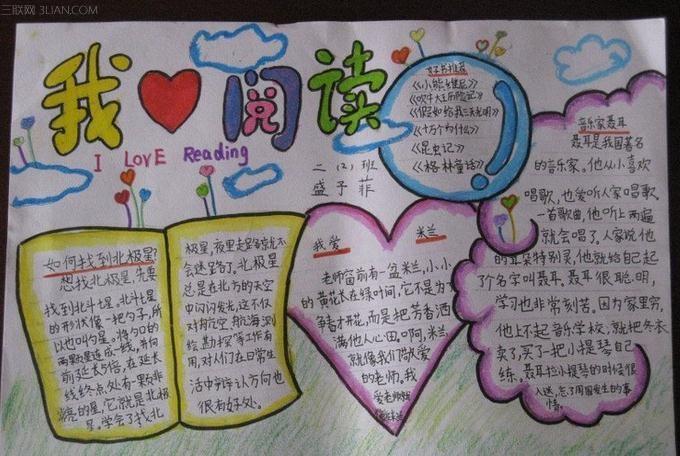 三联网 3LIAN.COM
我 阅读
I LOVE Reading
二（2）班
盛子菲
好书推荐
《小熊维尼》
《吹牛大王历险记》
《假如给我三天光明》
《十万个为什么》
《昆虫记》
《格林童话》
如何找到北极星?
想找北极星,先要
找到北斗七星,北斗七星
的形状像一把勺子,所
以也叫勺星。将勺口的
两颗星连成一线,并向
前延长5倍,在延长
线终点处有一颗非
亮的星,它就是北极
星。学会了找北
极星,夜里走路就不
会迷路了。北极星
总是在北方的天空
中闪闪发光,这不仅
对航空,航海测
绘勘探等工作有
用,对人们在日常生
活中辨认方向也
很有好处。
我爱 米兰
老师窗前有一盆米兰,小小
的黄花长在绿叶间,它不是为了
争春才开花,而是把芳香洒
满他人心田。啊,米兰,
就像我们敬爱
的老师。我
爱老师
音乐家聂耳
聂耳是我国著名
的音乐家。他从小喜欢
唱歌,也爱听人家唱歌。
一首歌曲,他听上两遍
就会唱了。人家说他
的耳朵特别灵,他就给自己起
了个名字叫聂耳。聂耳很聪明,
学习也非常刻苦。因为家里穷,
他上不起音乐学校,就把冬衣
卖了,买了一把小提琴自己
练。聂耳拉小提琴的时候很
入迷,忘了周围发生的事
情。